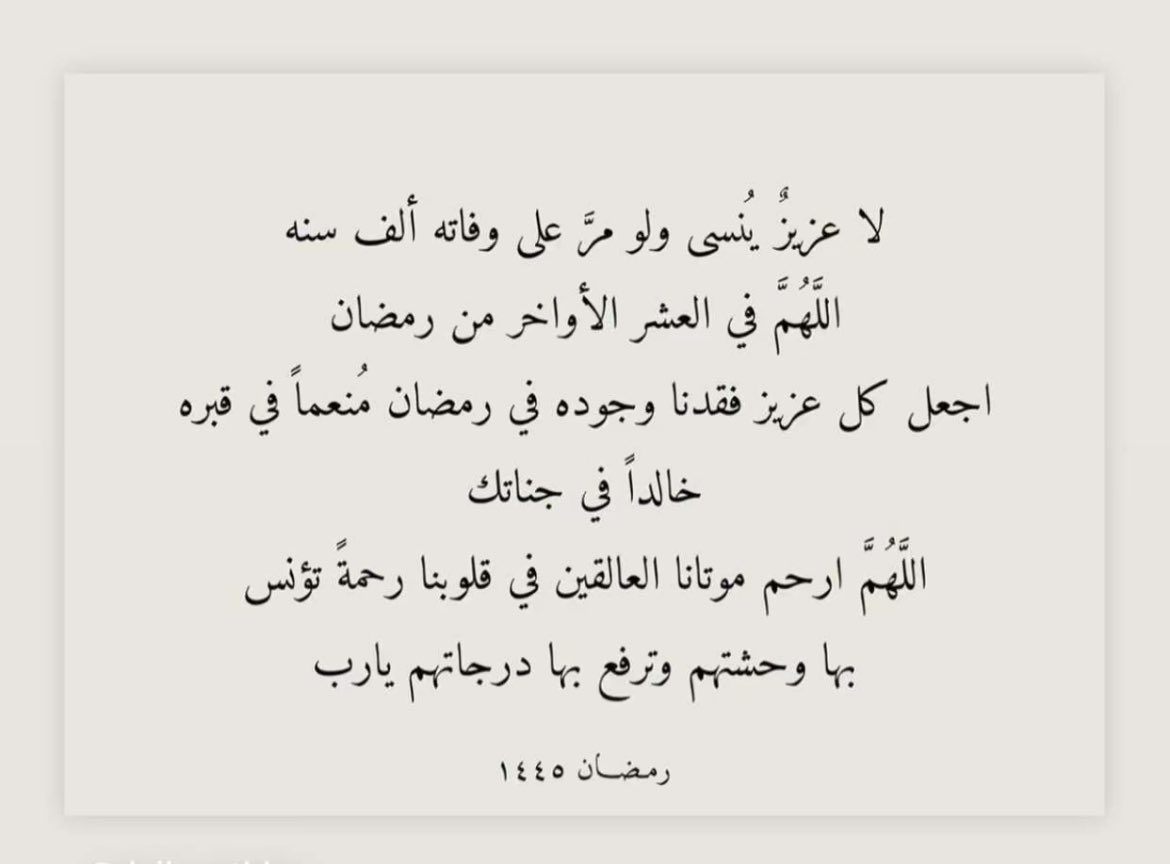 لا عزيزٌ يُنسى ولو مرَّ على وفاته ألف سنه
اللَّهُمَّ في العشر الأواخر من رمضان
اجعل كل عزيز فقدنا وجوده في رمضان مُنعماً في قبره
خالداً في جناتك
اللَّهُمَّ ارحم موتانا العالقين في قلوبنا رحمةً تؤنس
بها وحشتهم وترفع بها درجاتهم يارب
رمضان ١٤٤٥